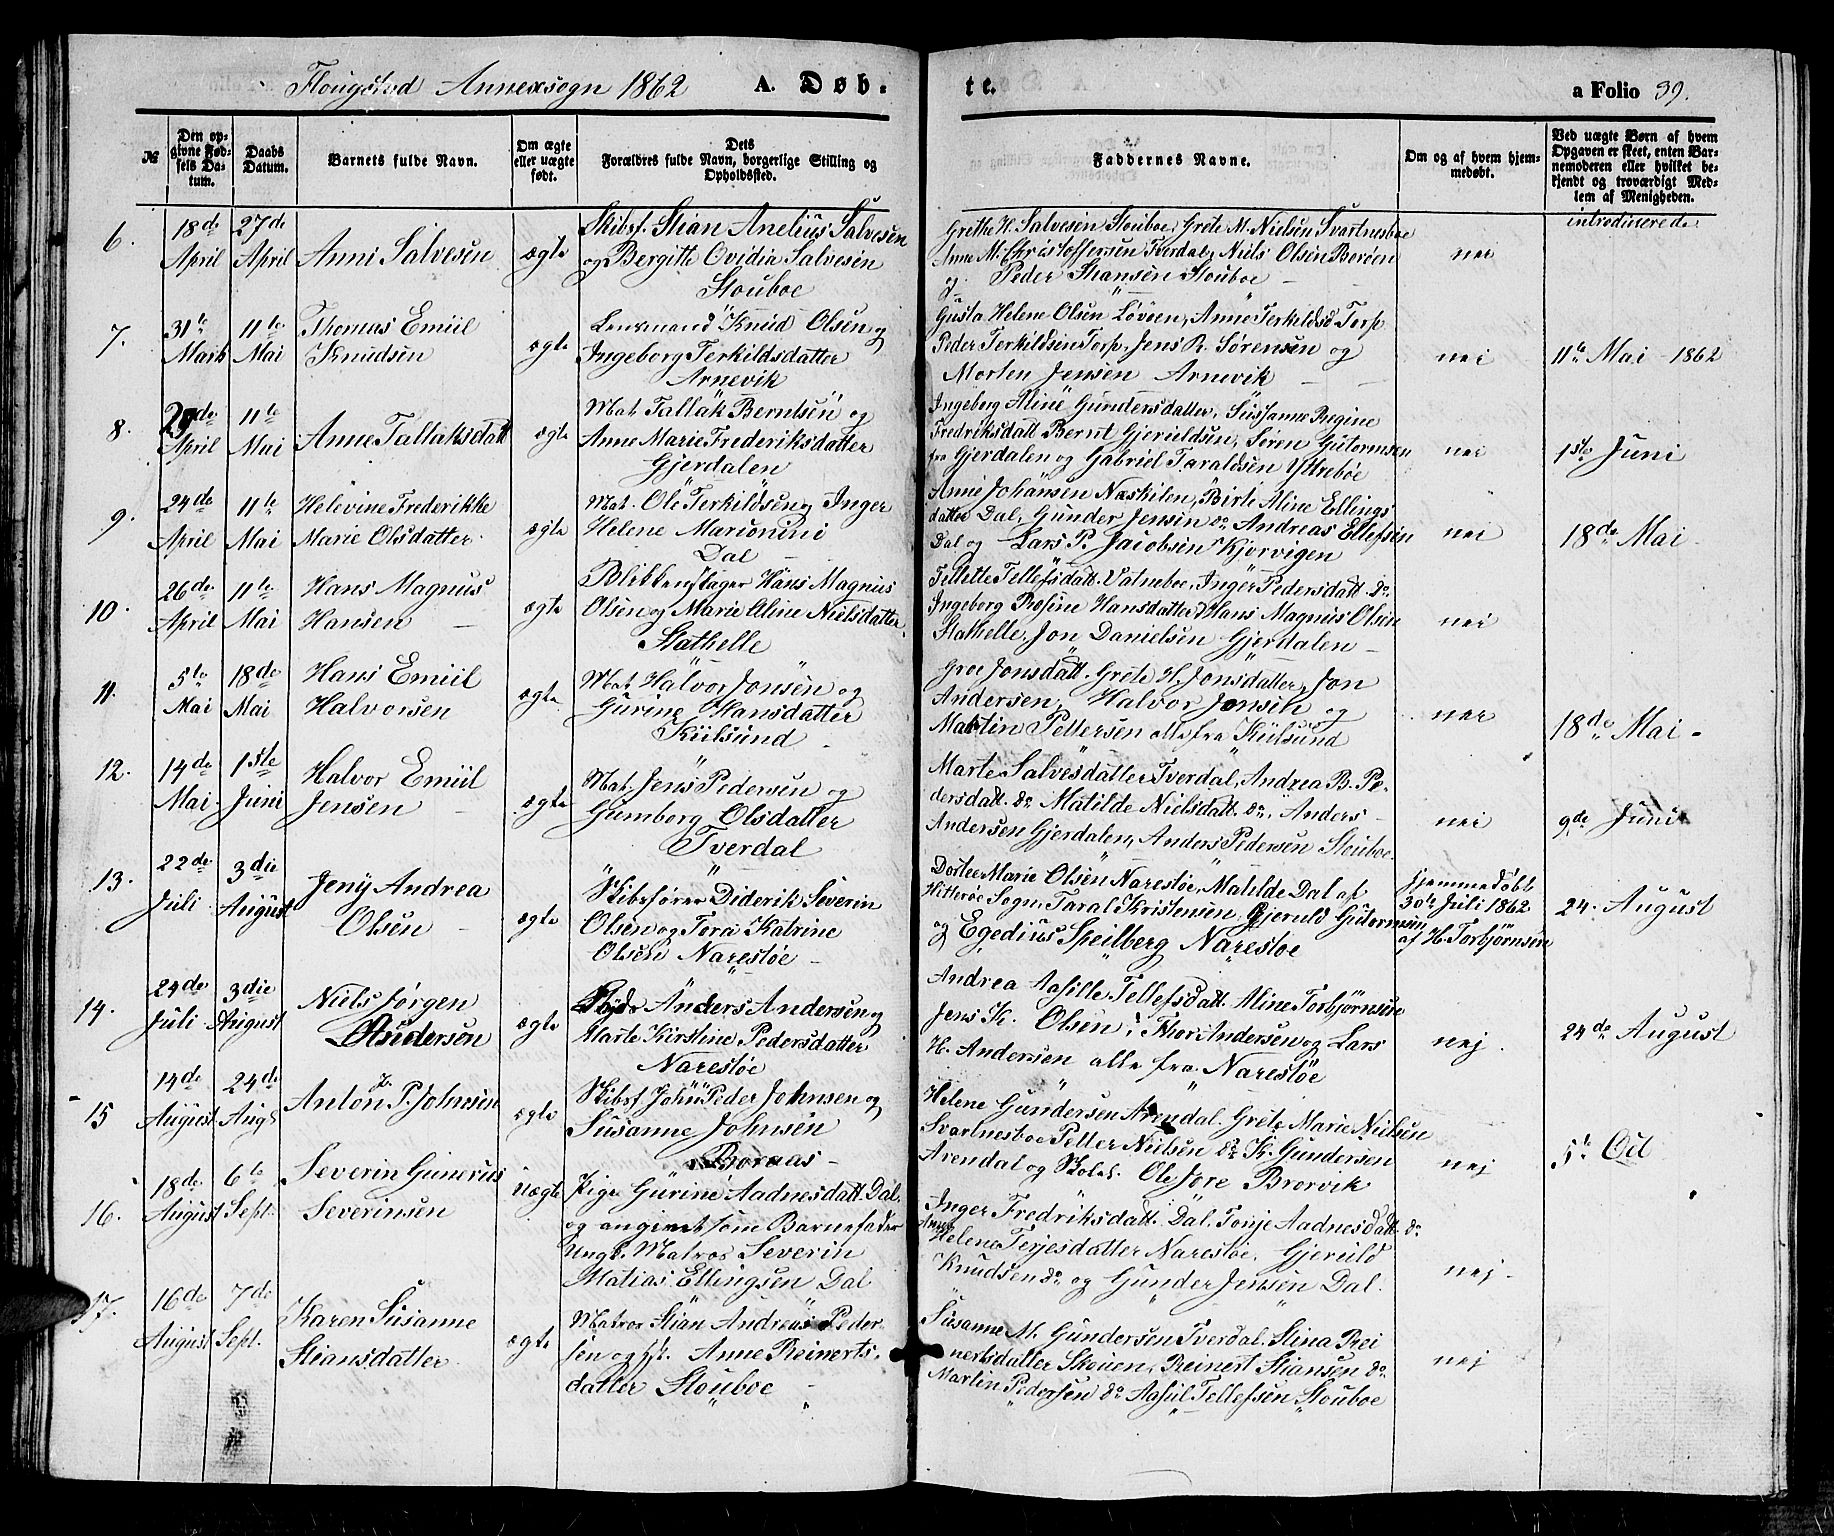 Flougstad Annexsogn 1862 A. Døb- te. a Folio 39.
№
Den op-
givne Fød-
sels Da-
tum.
Daabs
Datum.
Barnets fulde Navn.
Om ægte
eller uægte
født.
Dets
Forældres fulde Navn, borgerlige Stilling og
Opholdssted.
Faddernes Navne.
Om og af hvem hjem-
medøbt.
Ved uægte Børn af hvem
Opgaven er skeet, enten Bar-
nemoderen eller hvilket be-
kjendt og troværdigt Med-
lem af Menigheden.
introducerede
6.
18de
April
27de
April
Anni Salvesen
ægte
Skibsf. Stian Anelius Salvesen
og Bergitte Ovidia Salvesen
Stouboe
Grethe H. Salvesen Stouboe, Grete M. Nielsen Svartnesboe
Anne M. Christoffersen Tverdal, Niels Olsen Borøen
og Peder Hansen Stouboe
nei
7.
31te
Marts
11te
Mai
Thomas Emiil
Knudsen
ægte
Lensmand Knud Olsen og
Ingeborg Terkildsdatter
Arnevik
Gusta Helene Olsen Løveen, Anne Terkildsd Torp
Peder Terkildsen Torp, Jens R. Sørensen og
Morten Jensen Arnevik
nei
11te Mai 1862
8.
April
11te
Mai
Anne Tallaksdatt
ægte
Mat. Tallak Berntsen og
Anne Marie Frederiksdatter
Gjerdalen
Ingeborg Aline Gundersdatter, Sussanne Regine
Fredriksdatt Bernt Gjerüldsen, Søren Gutormsen
fra Gjerdalen og Gabriel Taraldsen Yttrebøe
nei
1ste Juni
9.
24de
April
11te
Mai
Helevine Frederikke
Marie Olsdatter
ægte
Mat. Ole Terkildsen og Inger
Helene Marionini
Dal
Anne Johansen Næskilen, Birte Aline Ellings
datter Dal, Gunder Jensen do Andreas Ellefsen
Dal og Lars P. Jacobsen Kjorvigen
nei
18de Mai
10.
26de
April
11te
Mai
Hans Magnus
Hansen
ægte
Blikkenslager Hans Magnus
Olsen og Marie Aline Nielsdatter
Stathelle
Tellette Tellefsdatt. Vatneboe, Inger Pedersdatt do
Ingeborg Rosine Hansdatter, Hans Magnus Olsen
Stathelle, Jon Danielsen Gjerdalen
nei
11.
5te
Mai
18de
Mai
Hans Emiil
Halvorsen
ægte
Mat. Halvor Jonsen og
Gurine Hansdatter
Kiilsund
Groe Jonsdatt. Grete H. Jonsdatter, Jon
Andersen, Halvor Jonsen og
Martin Pettersen alle fra Kiilsund
nei
18de Mai
12.
14de
Mai
1ste
Juni
Halvor Emiil
Jensen
ægte
Mat. Jens Pedersen og
Gumborg Olsdatter
Tverdal
Marte Salvesdatter Tverdal, Andrea B. Pe-
dersdatt. do Matilde Nielsdatt. do, Anders
Andersen Gjerdalen, Anders Pedersen Stouboe
nei
9de Juni
13.
22de
Juli
3die
August
Jeny Andrea
Olsen
ægte
Skibsfører Diderik Severin
Olsen og Tora Katrine
Olsen Narestøe
Dortee Marie Olsen Narestøe, Matilde Dal af
Hitterøe Sogn, Taral Kristensen, Gjeruld Gutormsen
og Egedius Speilberg Narestøe
hjemmedøbt
30te Juli 1862
af H. Torbjørnsen
24. August
14.
24de
Juli
3die
August
Niels Jørgen
Andersen
ægte
Anders Andersen og
Marte Kirstine Pedersdatter
Narestøe
Andrea Aasille Tellefsdatt. Aline Torbjørnsen
Jens K. Olsen, Thor Andersen og Lars
H. Andersen alle fra Narestøe
nej
24de August
15
14de
August
24de
Augt
Anton P. Johnsen
ægte
Skibsf. John Peder Johnsen og
Susanne Johnsen
Boraas
Helene Gundersen Arendal. Grete Marie Nielsen
Svartnesboe Petter Nielsen do K. Gundersen
Arendal og Skolel. Ole Jore Brorvik
nej
5te Oct
16.
18de
August
6te
Sept.
Severin Gunerius
Severinsen
Uægte
Pige Gurine Aadnesdatt. Dal
og angivet som Barnefader
Ungk. Matros Severin
Matias Ellingsen Dal
Inger Fredriksdatt. Dal. Tonje Aadnesdatt do
Anne
Helene Terjesdatter Narestøe, Gjeruld
Knudsen do og Gunder Jensen Dal
nej
17.
16de
August
7de
Sept.
Karen Susanne
Stiansdatter
ægte
Matros Stian Andreas Peder
sen og Anne Reinerts-
datter Stouboe
Susanne M. Gundersen Tverdal, Stina Rei
nertsdatter Skouen, Reinert Stiansen do
Martin Pedersen do Aasul Tellefsen Stouboe
nej